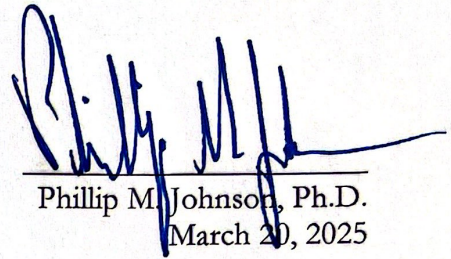 Phillip M. Joh
Phillip M. Johnson, Ph.D.
March 20, 2025